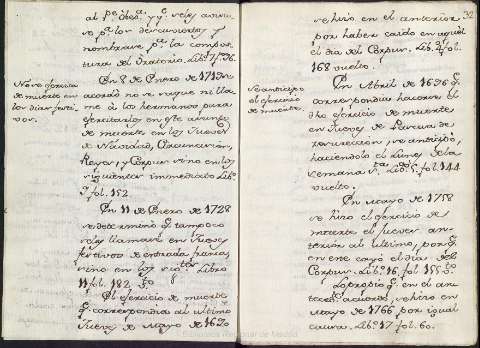 se pr los descuidados, y
nombrase pa. la compos-
tura del Oratorio. Libo. 7 fo. 96.
No se exercita
de muerte en
los dias festi-
vos.
En 8 de Enero de 1719 se
acordó no se saque ni lla-
me à los hermanos para
exercitarlo, en este asunto
de muerte en los Jueves
de Navidad, Circuncision,
Reyes, y Corpus sino en los
siguientes immediatos Libo.
9 fol. 152.
En 11 de Enero de 1728
se determinó q. tampoco
se les llamase en Jueves
festivos de entrada franca,
sino en los sigtes. Libro
11 fol. 182. bto
El exercicio de muerte
q. correspondia al ultimo
Jueves de Mayo de 1620
32
se hizo en el anterior
por haber caido en aquel
el dia del Corpus. Libo. 2 fol.
168 vuelto.
Se anticipó
el exercicio
de muerte.
En Abril de 1696 q.
correspondia hacerse el
dho exercicio de muerte
en Jueves de Pascua de
resurreccion, se anticipó,
haciendolo el Lunes de la
semana sta. Libo. 5. fol. 144
vuelto.
En Mayo de 1758
se hizo el exercicio de
muerte el Jueves an-
terior al ultimo, porq.
en ese cayó el dia del
Corpus. Libo. 16. fol. 155. bto
Lo propio q. en el an-
teced. acuerdo, se hizo en
Mayo de 1766, por igual
causa. Libo. 17 fol. 60.
Biblioteca Regional de Madrid